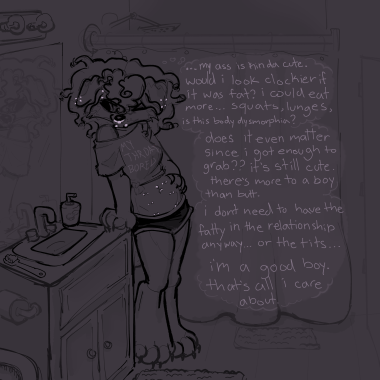 ...my ass is kinda cute.
would i look clockier if
it was fat? i could eat
more... squats, lunges,
is this body dysmorphia?
does it even matter
since i got enough to
grab?? it's still cute.
there's more to a boy
than butt.
i dont need to have the
fatty in the relationship
anyway... or the tits...
i'm a good boy.
that's all i care
about.
MY